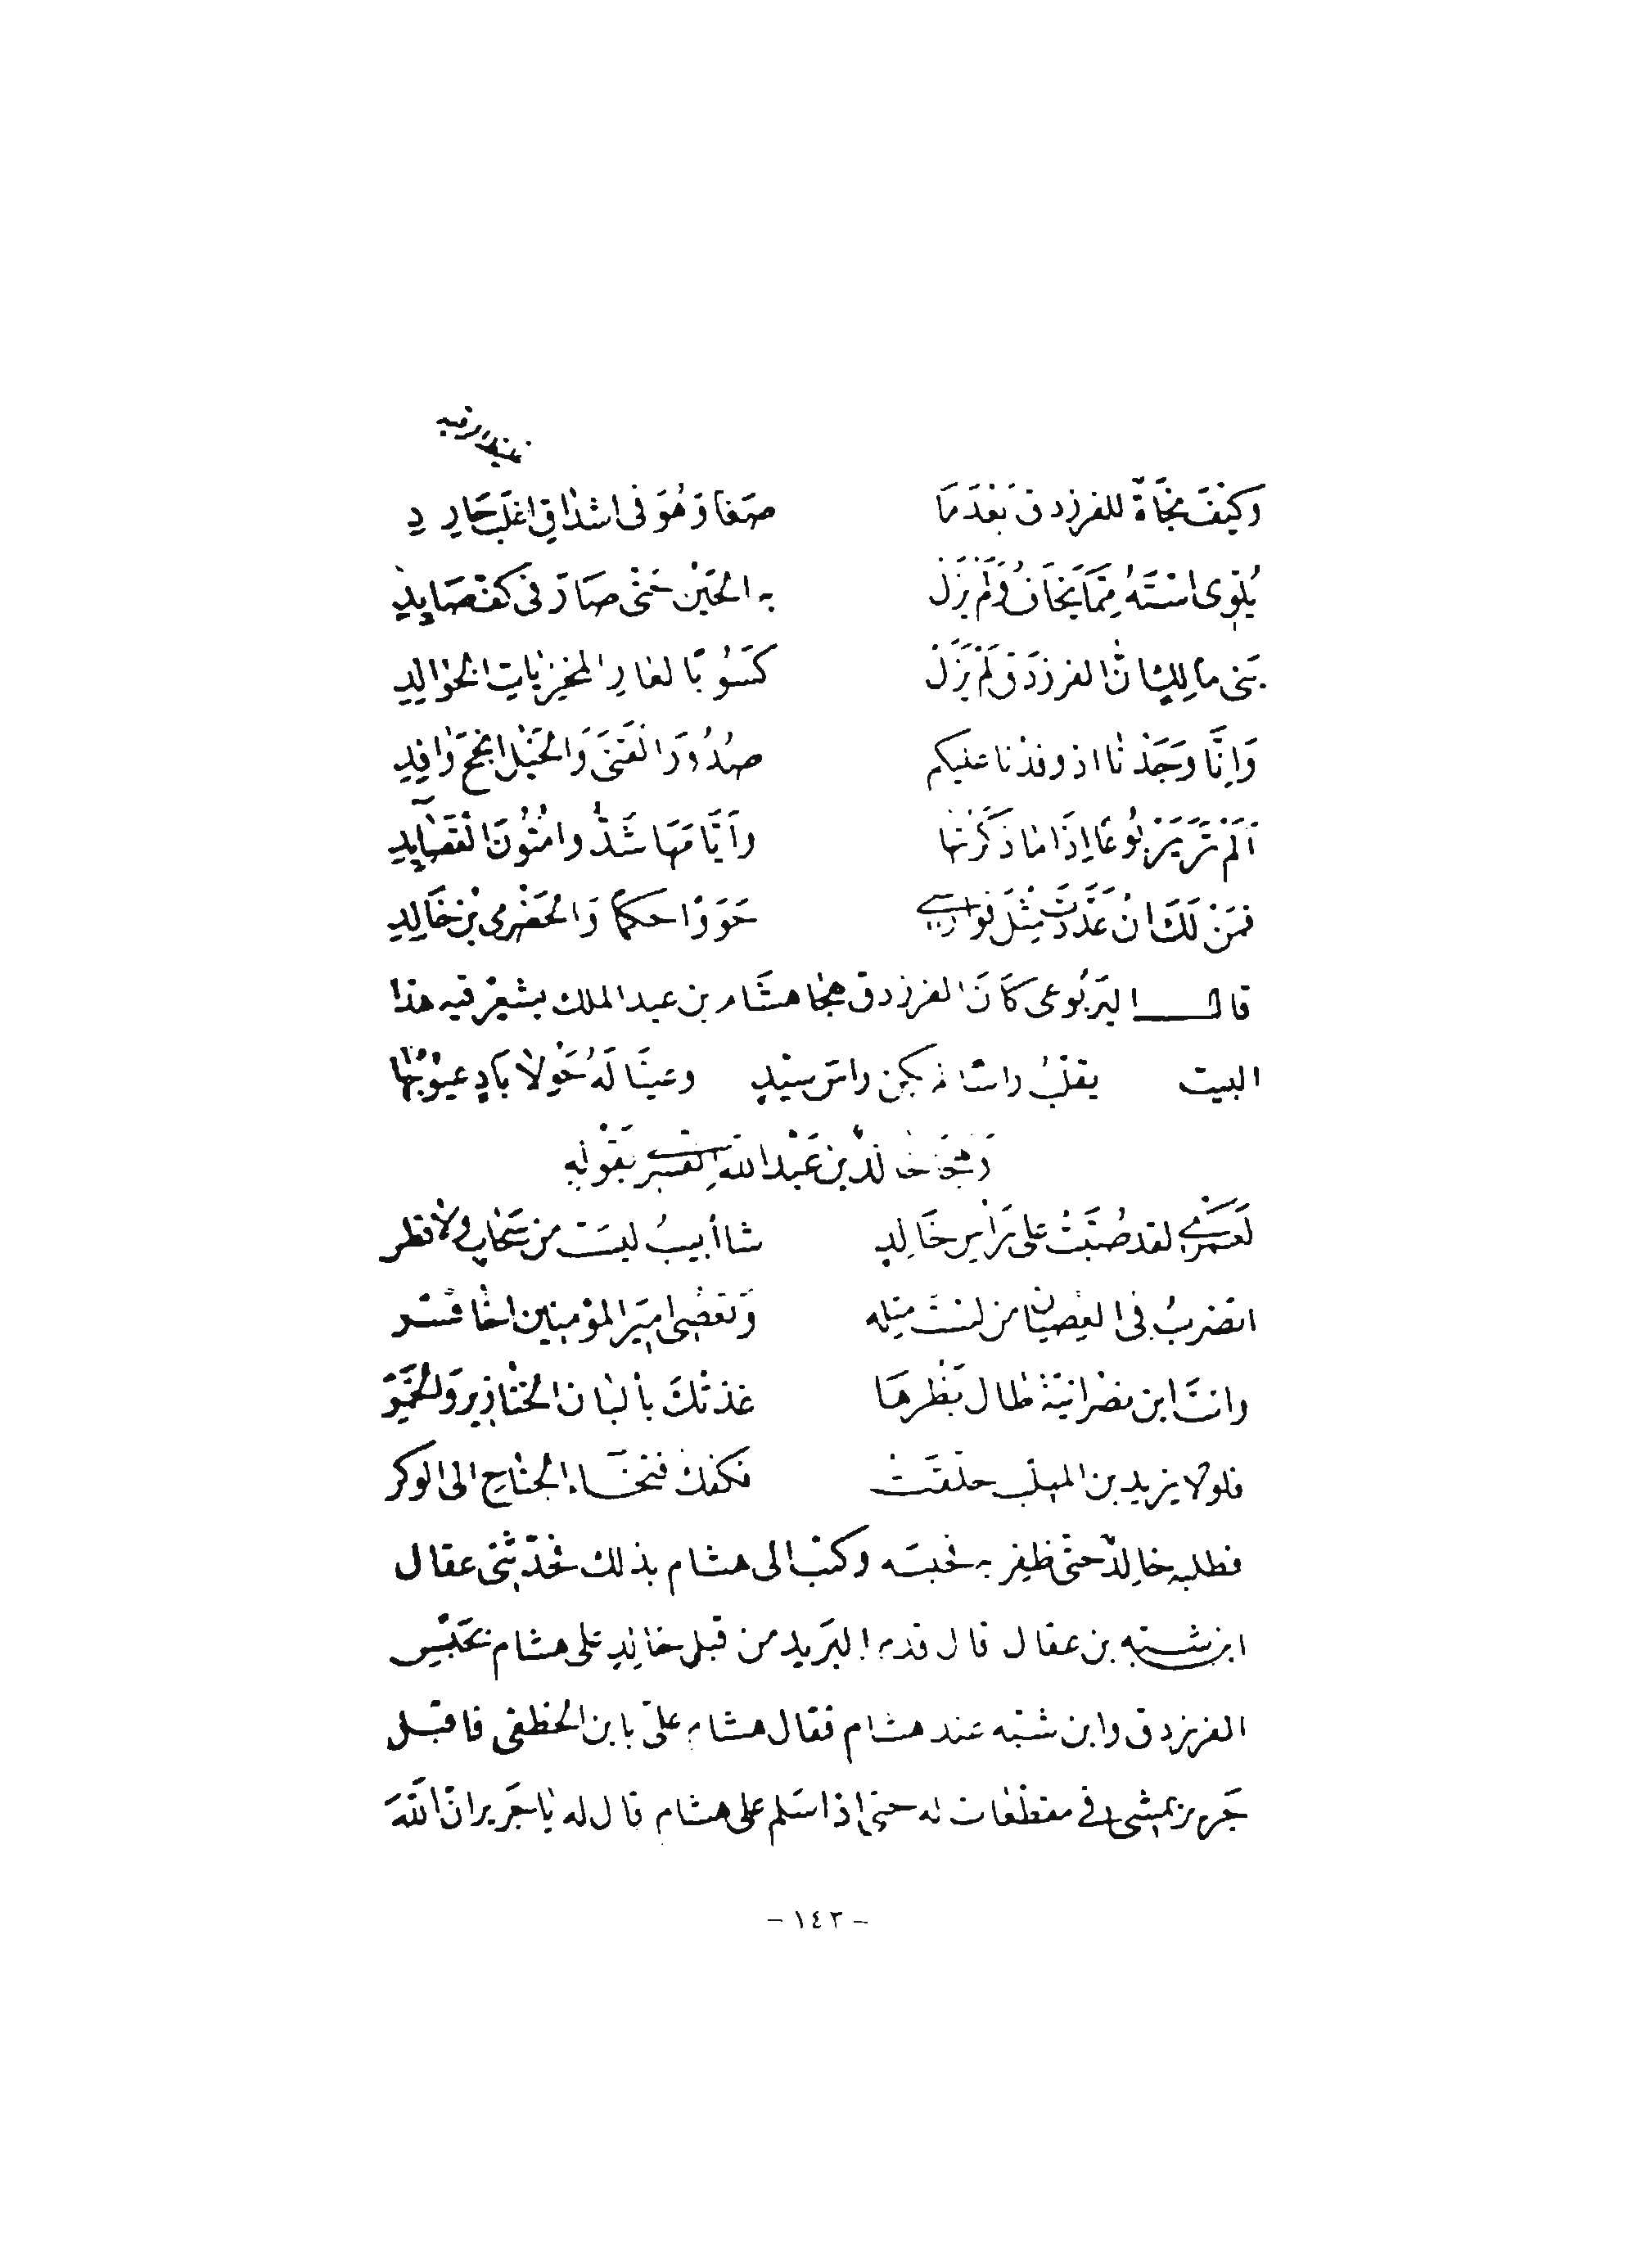 وَكَيْفَ نَجَاةٌ للفرزدق بَعْدَمَا ضَغَا وَهُوَ فى اشدَاقِ اغلَبَ حَارِدِ
يُلَوّى اسْتَهُ مِمَّا يَخَافُ وَلَمْ يَزَلْ به الحَيْن حَتّى صَارَ فى كَفّ صَايِدِ
بَنى مالِكٍ انّ الفرزدَق لَمْ يَزَلْ كَسُوبًا لعارِ المخزِيَاتِ الخَوَالِدِ
وَإِنَّا وَجَدْنَا اذ وفدْنا عليكم صُدُورَ القَنَى وَالخَيْلَ انْجَحَ وَافِدِ
اَلَمْ تَرَ يَرْبُوعًا إِذَا مَا ذَكَرْتَهَا وأيَّامَهَا شَدُّوا مُتُونَ الْقَصَايِدِ
فَمَنْ لَكَ انْ عَدَّدتَ مِثْلَ فَوَارِسي حَوَوْا حَكَمًا وَالحَضْرمى بْن خَالِدِ
قال اليَرْبُوعى كَانَ الفرزدق هَجَا هشَام بن عبد الملك بشعْرٍ فيه هذا
البيت يقلّبُ راسًا لم يكن راسَ سيّدٍ وعينًا لَهُ حَوْلاَ بَادٍ عيُوبُهَا
وَهَجَا خالد بن عَبْد اللهِ القسْرى بقَوْلِهِ
لَعَمْرِي لقد صُبَّتْ على رَأسِ خَالِدٍ شاأبيبُ ليسَت من سَحَابٍ ولا قطر
اتضربُ فى العِصيان من لسْتَ مثله وَتعْصِى امِيرَ المؤمِنِين اخَا قسْر
وانتَ ابن نصْرانيّة طال بَظْرهَا غذتْكَ بألبان الخنَازِير وَالخمْرِ
فلولا يزيد بن المهلّب حلّقَتْ بكفّك فتخَاء الجنَاحِ الى الوكر
فطلبه خالدٌ حتى ظفر به فحبسَه وكتب الى هشام بذلك فحدّثنى عقال
ابن شبّه بن عقال قال قدم البَريد من قبل خالِدٍ على هشام بحَبْس
الفرزدق وابن شبّه عند هشام فقال هشام علىّ بابن الخطفى فاقبل
جَرير يمشى فى مقطعات له حتى إذا سَلم على هشام قال له يَا جَرير انّ اللهَ
- ١٤٣ -